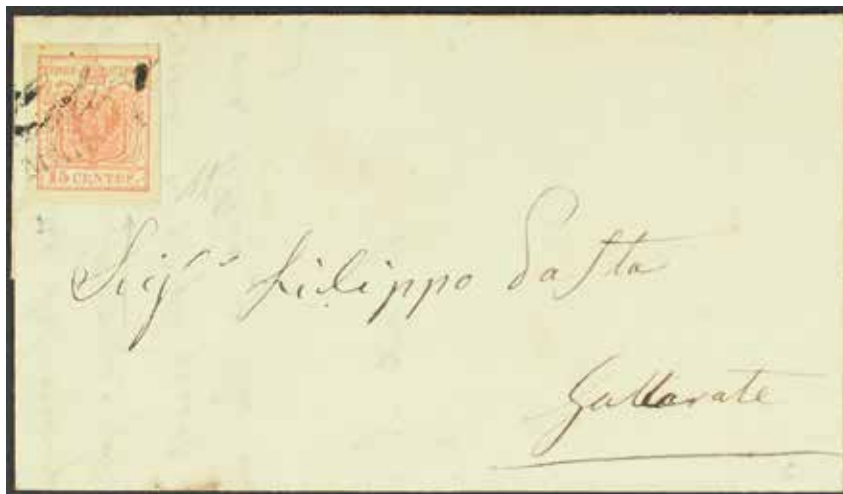 15 CENTES
Sigr Filippo Pasta
Gallarate